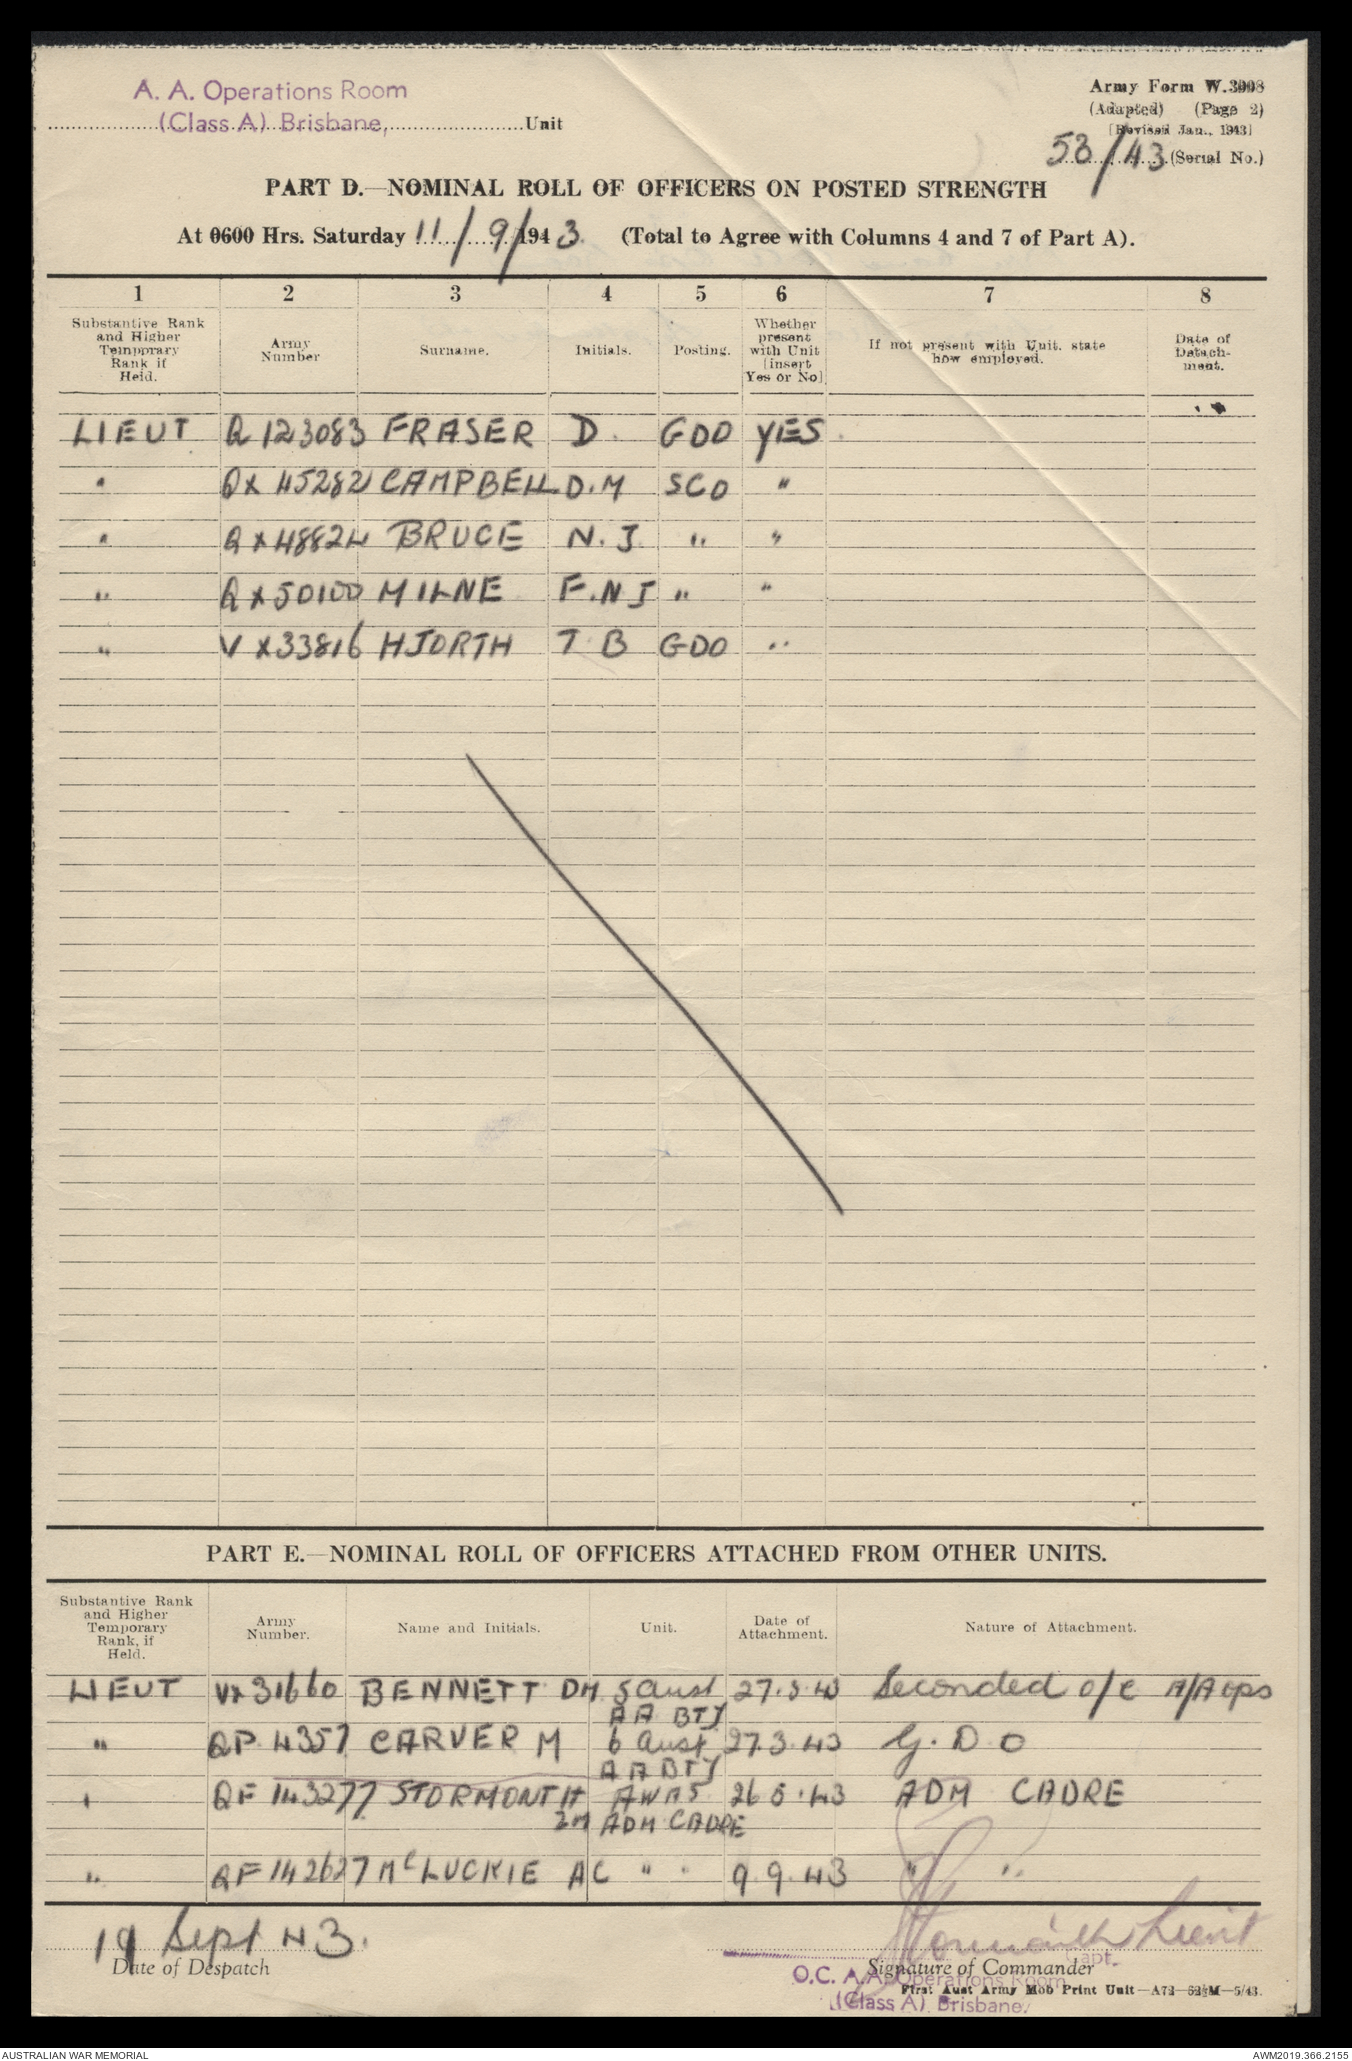 A. A. Operations Room
(Class A) Brisbane, Unit
Army Form W.3008
(Adapted) (Page 2)
(Revised Jan., 1943)
53/43 (Serial No.)
PART D.—NOMINAL ROLL OF OFFICERS ON POSTED STRENGTH
At 0600 Hrs. Saturday 11/9/1943 (Total to Agree with Columns 4 and 7 of Part A).
1 2 3 4 5 6 7 8
Substantive Rank and Higher Temporary Rank if Held. Army Number Surname. Initials. Posting. Whether present with Unit (insert Yes or No) If not present with Unit, state how employed. Date of Detachment.
LIEUT Q 123083 FRASER D. GDO YES
" QX 45282 CAMPBELL D.M SCO "
" QX 48824 BRUCE N. J. " "
" QX 50100 MILNE F.N J " "
" VX33816 HJORTH T B GDO "
PART E.—NOMINAL ROLL OF OFFICERS ATTACHED FROM OTHER UNITS.
Substantive Rank and Higher Temporary Rank, if Held. Army Number. Name and Initials. Unit. Date of Attachment. Nature of Attachment.
LIEUT VX 31660 BENNETT DM 5 Aust AA BTY 27.5.43 Seconded o/c A/A ops
" QP 4357 CARVER M 6 Aust AA BTY 27.3.43 G. D O
" QF 143277 STORMONTH AWAS ADM CADRE 26 5.43 ADM CADRE
" QF 142627 McLUCKIE AC " " 9.9.43 " "
19 Sept 43.
Date of Despatch
Lieut
Capt.
Signature of Commander
O.C. A.A. Operations Room
(Class A) Brisbane.
First Aust Army Mob Print Unit—A72—52½M—5/43.
AUSTRALIAN WAR MEMORIAL
AWM2019.366.2155